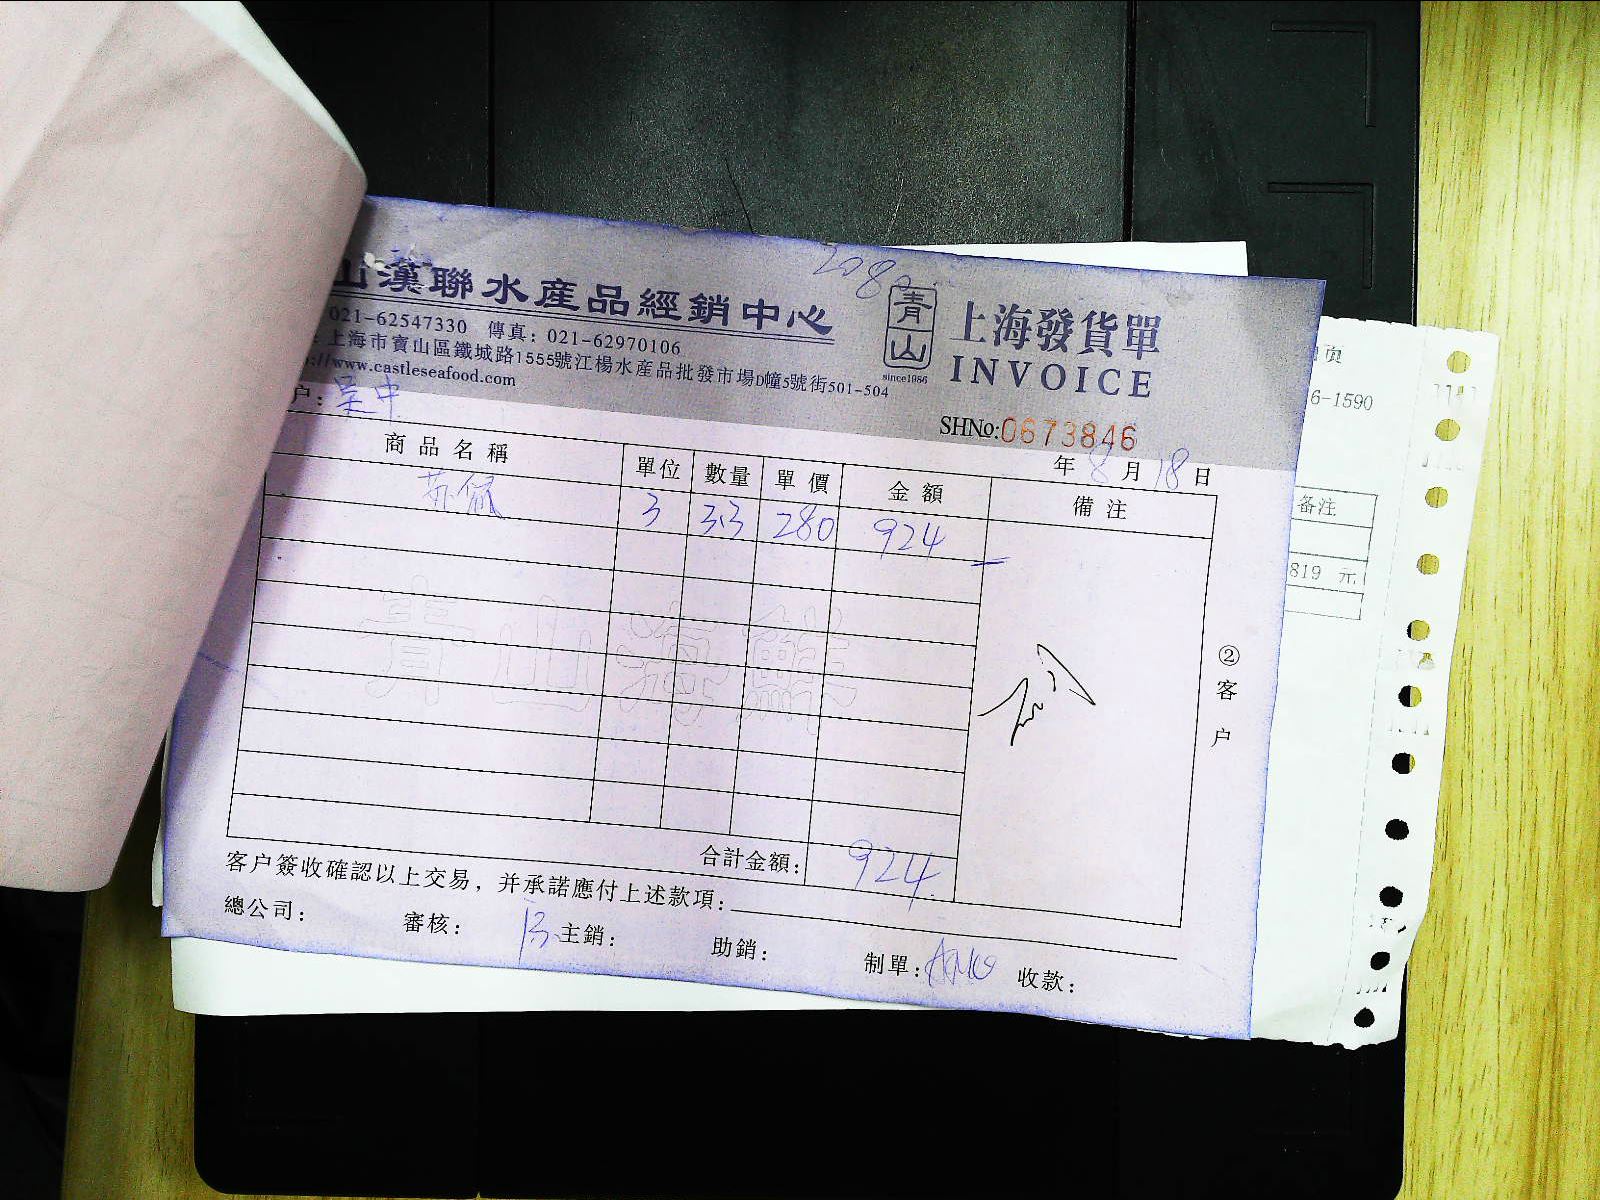 山漢聯水產品經銷中心
021-62547330 傳真：021-62970106
上海市寶山區鐵城路1555號江楊水產品批發市場D幢5號街501-504
://www.castleseafood.com
208
青山
since1986
上海發貨單
INVOICE
SHNo:0673846
户：吴中
年8月18日
商品名稱 單位 數量 單價 金額 備注
3 3.3 280 924
青山海鮮
合計金額：924
②客户
客户簽收確認以上交易，并承諾應付上述款項：
總公司： 審核： 主銷： 助銷： 制單： 收款：
页
6-1590
备注
819 元